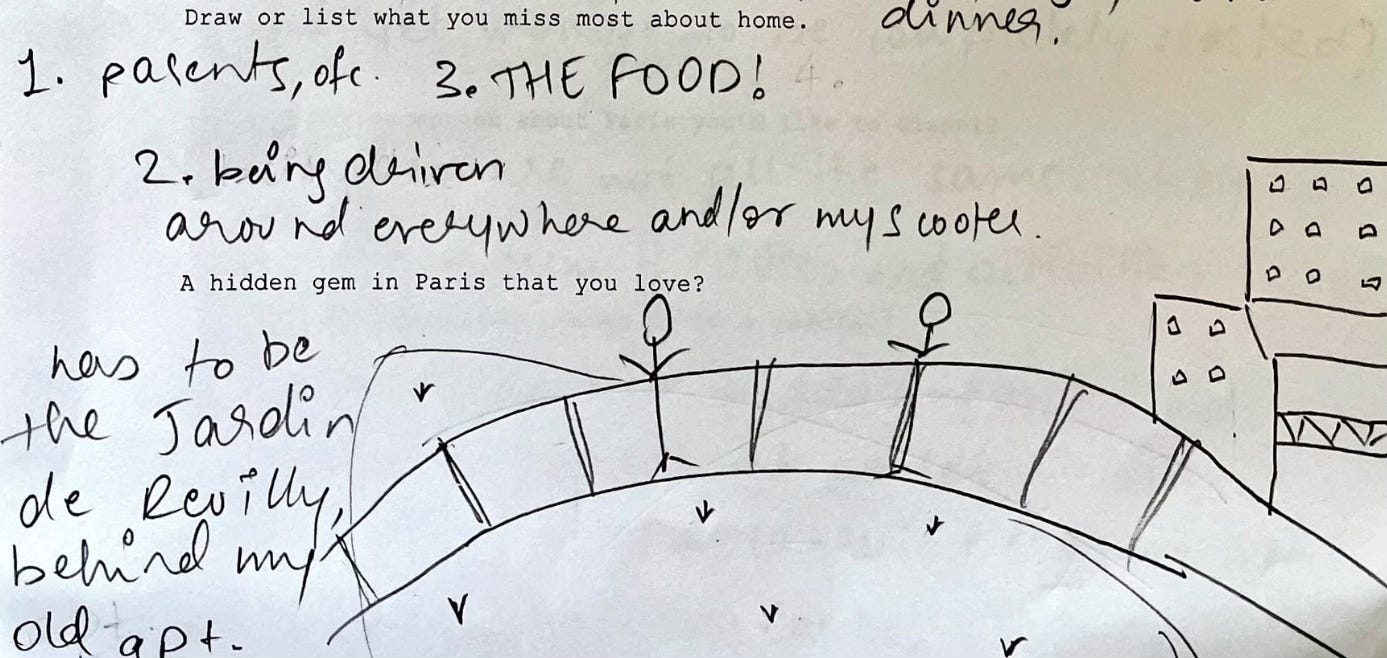 dinner.
Draw or list what you miss most about home.
1. parents, ofc. 3. THE FOOD! 4.
2. being driven
around everywhere and/or my scooter.
A hidden gem in Paris that you love?
has to be
the Jardin
de Reuilly,
behind my
old apt.